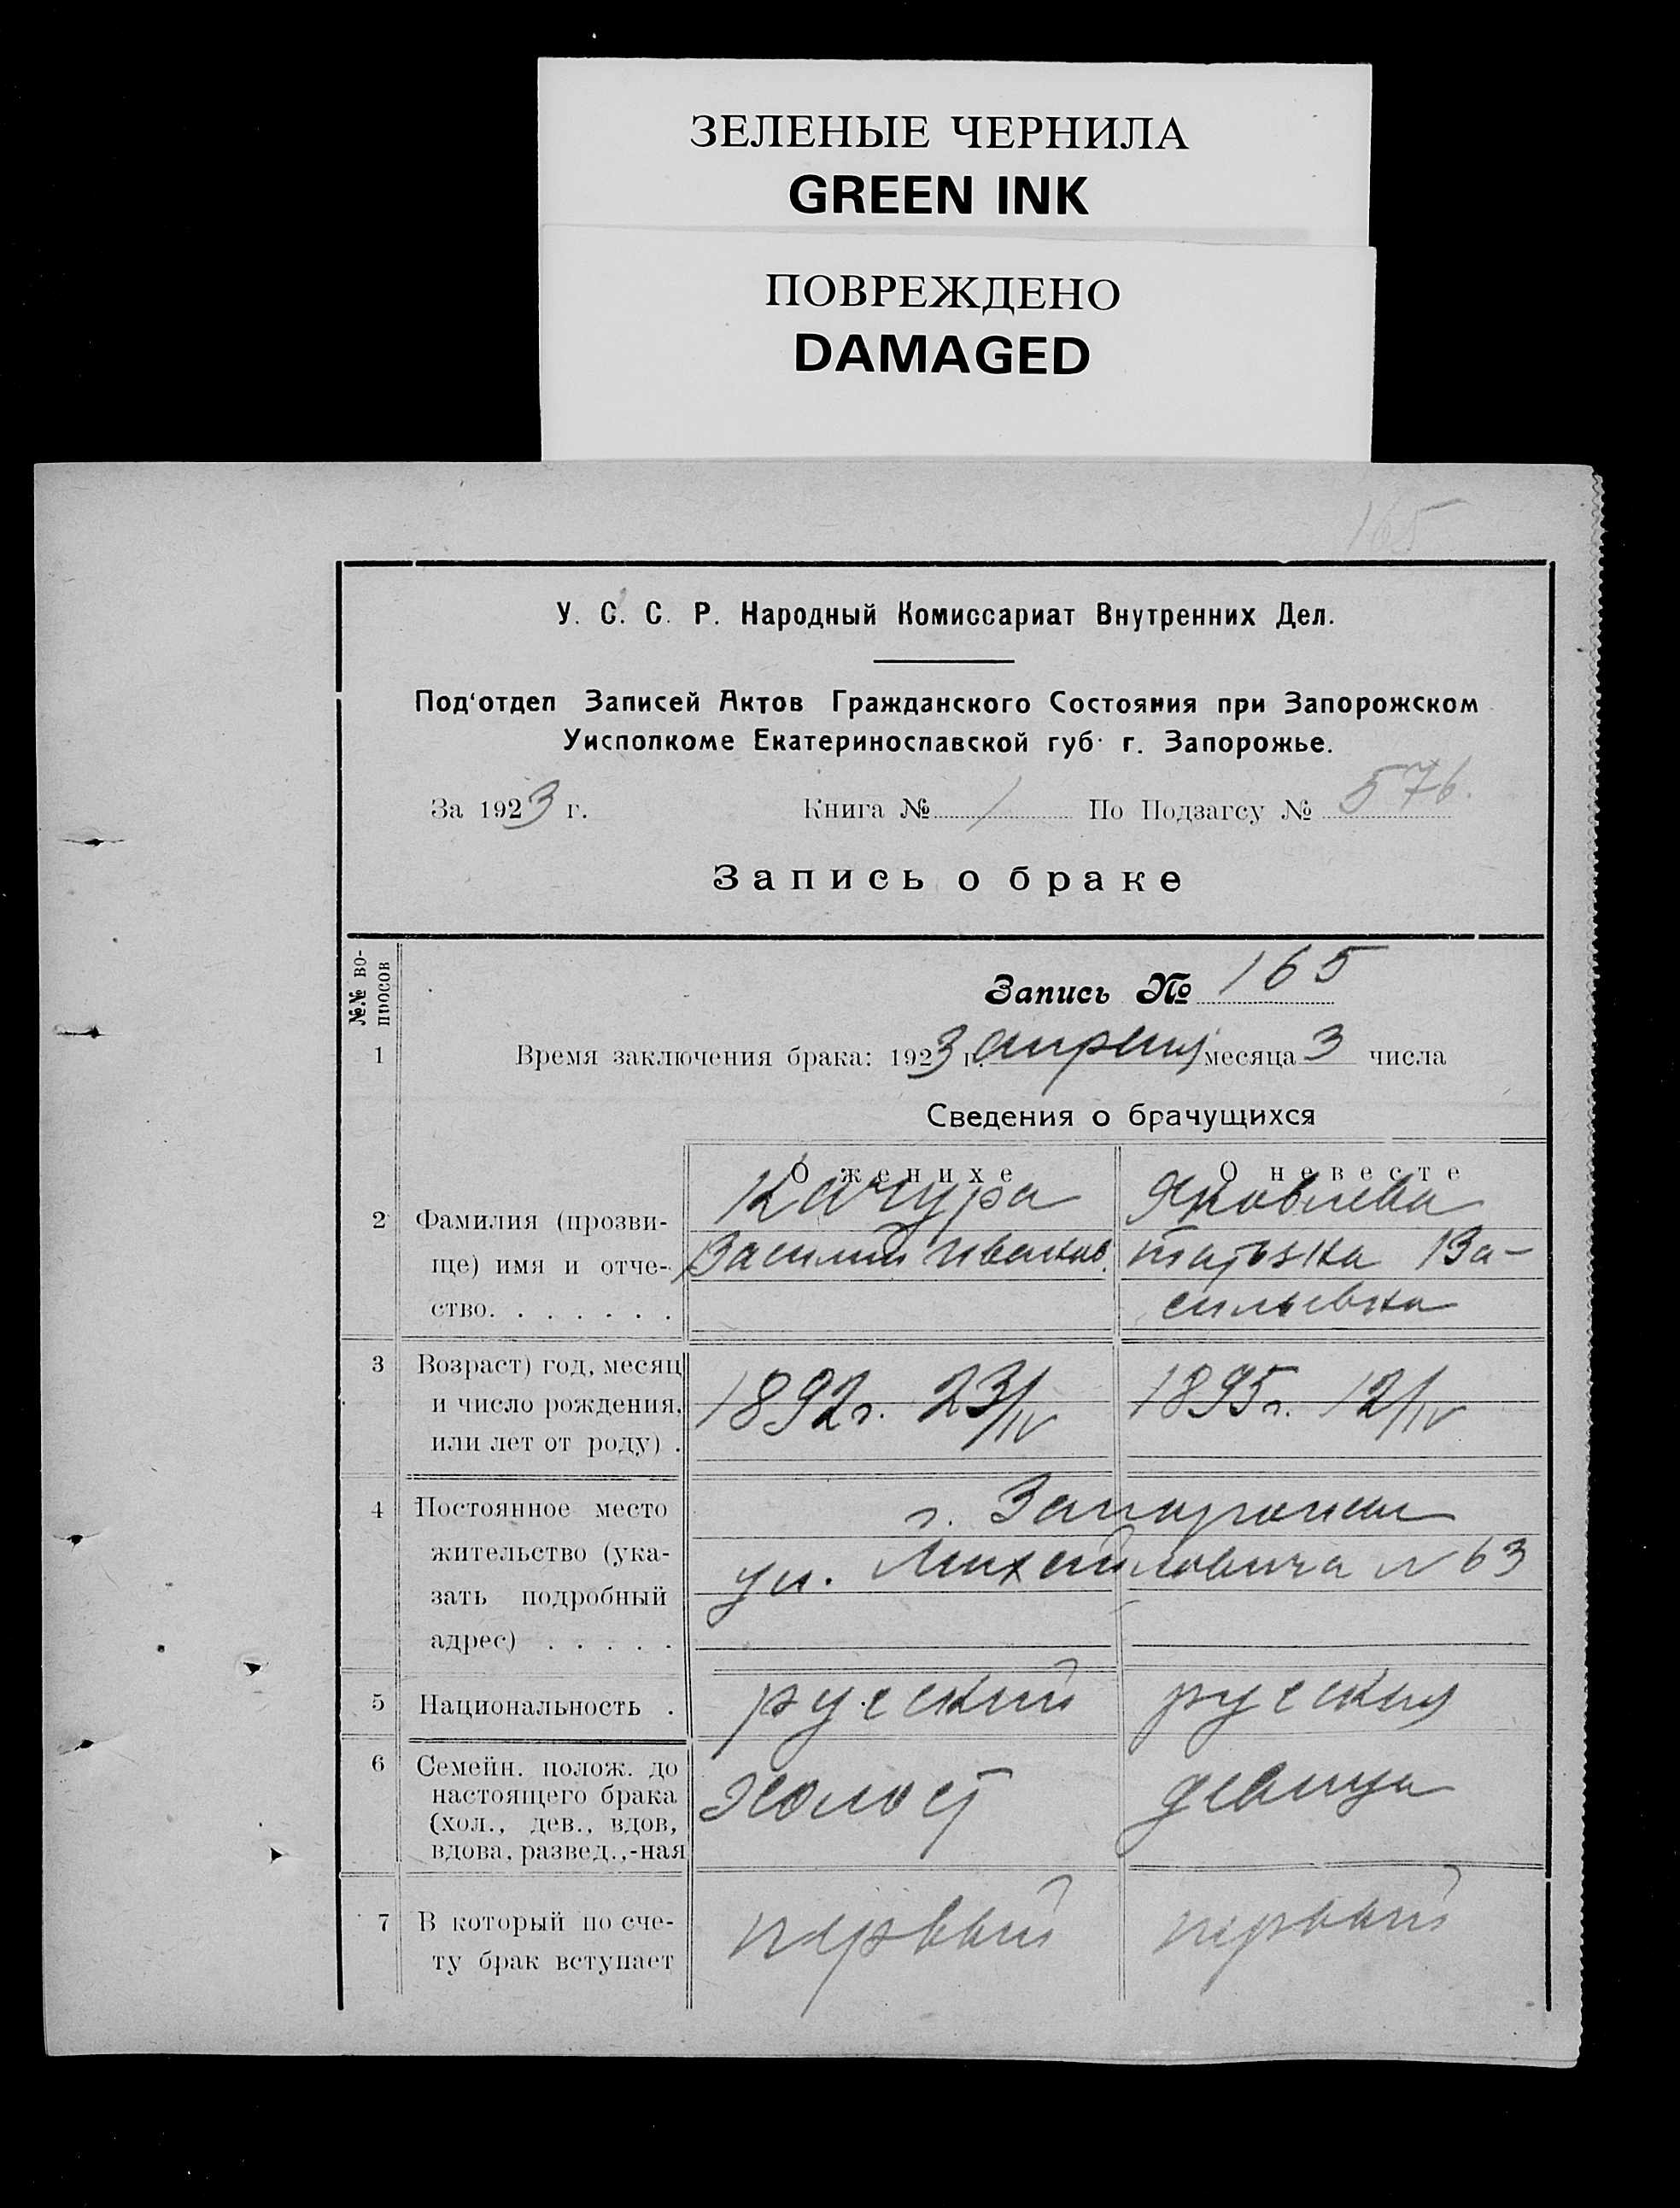 ЗЕЛЕНЫЕ ЧЕРНИЛА
GREEN INK
ПОВРЕЖДЕНО
DAMAGED
165
У. С. С. Р. Народный Комиссариат Внутренних Дел.
Под'отдел Записей Актов Гражданского Состояния при Запорожском
Уисполкоме Екатеринославской губ. г. Запорожье.
За 1923 г. Книга № 1 По Подзагсу № 576.
Запись о браке
№№ во-
просов
Запись № 165
1 Время заключения брака: 1923 г. апреля месяца 3 числа
Сведения о брачущихся
О женихе О невесте
Качура Яковлева
2 Фамилия (прозви-
ще) имя и отче- Василий Иванов. Татьяна Ва-
ство. . . . . . . сильевна
3 Возраст) год, месяц
и число рождения, 1892 г. 23/IV 1895 г. 12/IV
или лет от роду) .
4 Постоянное место г. Запорожье
жительство (ука- ул. Михайловича № 63
зать подробный
адрес) . . . . .
5 Национальность . русский русская
6 Семейн. полож. до
настоящего брака холост девица
(хол., дев., вдов,
вдова, развед.,-ная
7 В который по сче- первый первый
ту брак вступает